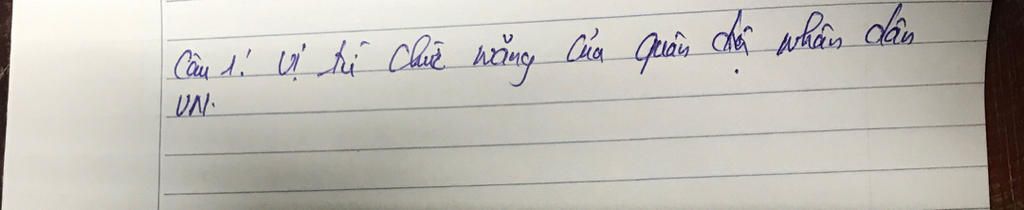 Câu 1: Vị trí Chức năng Của quân đội nhân dân
VN.